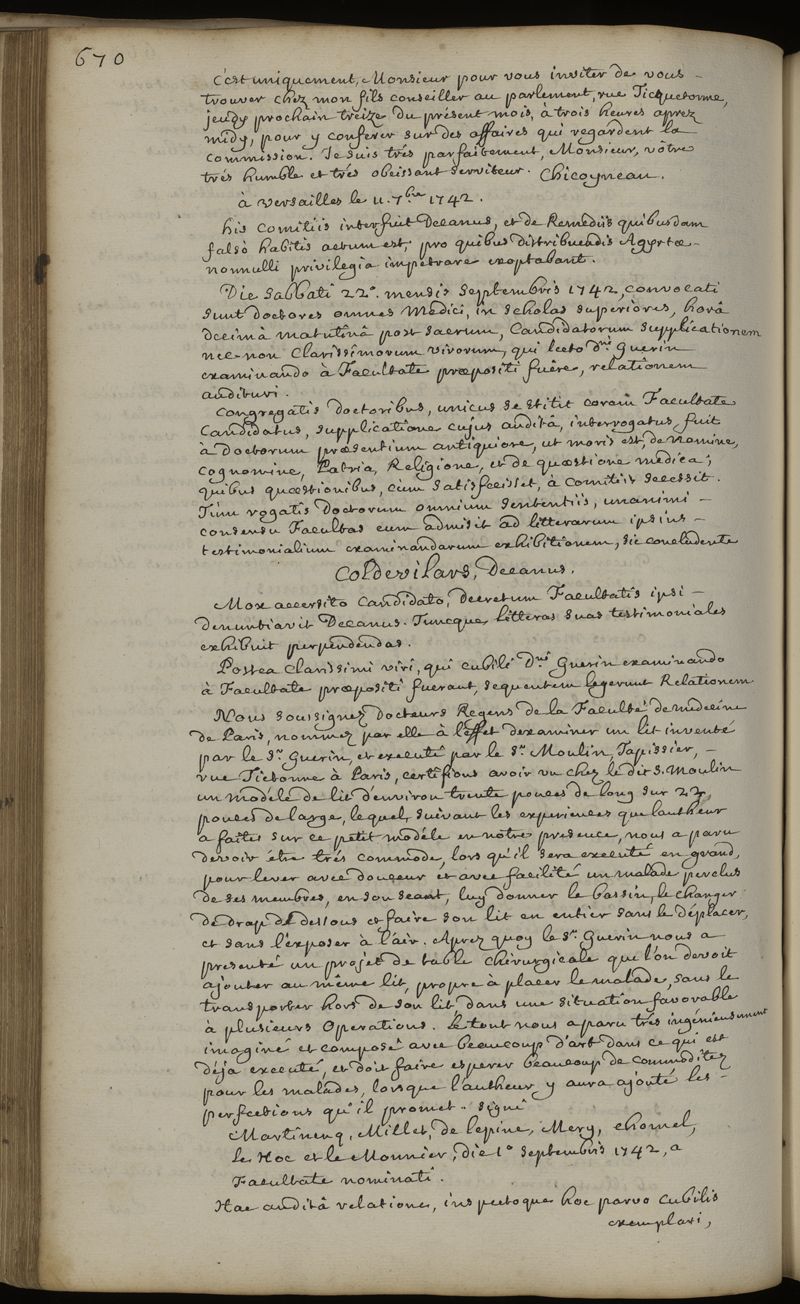 670
C'est uniquement, Monsieur pour vous inviter de vous –
trouver chez mon fils conseiller au parlement, rue Ticquetonne,
jeudy prochain treize du présent mois, à trois heures aprez
midy, pour y conferer sur des affaires qui regardent la
commission. Je suis trés parfaitement, Monsieur, vôtre
trés humble et trés obeissant serviteur. Chicoyneau.
à versailles le 11. 7.bre 1742.
his comitiis interfuit Decanus, et de Remediis quibusdam
falsò habitis actum est, pro quibus distribuendis Agyrtæ –
nonnulli privilegia impetrare exoptabant.
Die Sabbati 22.° mensis Septembris 1742, convocati
sunt doctores omnes Medici, in scholas superiores, horâ
decimâ matutinâ post sacrum, Candidatorum supplicationem
nec-non Clarissimorum virorum, qui lecto d.ni Guerin
examinando à Facultate præpositi fuêre, relationem
audituri.
Congregatis doctoribus, unicus se stitit coram Facultate
Candidatus, supplicatione cujus auditâ, interrogatus fuit
à doctorum præsentium antiquiore, ut moris est, de nomine,
cognomine, Patria, Religione, et de quæstione medica;
quibus quæstionibus, cùm satisfecisset, à Comitiis secessit.
Tùm rogatis doctorum omnium sententiis, unanimi –
consensu Facultas eum admisit ad litterarum ipsius –
testimonialium examinandarum exhibitionem, sic concludente
Coldevilars, Decanus.
Mox accersito Candidato, decretum Facultatis ipsi –
denuntiavit Decanus. Tuncque litteras suas testimoniales
exhibuit perpendendas.
Postea clarissimi viri, qui cubili D.ni Guerin examinando
à Facultate præpositi fuerant, sequentem legerunt Relationem
Nous soussignez docteurs Regens de la Faculté de medecine
de Paris, nommez par elle à l'effet d'examiner un lit inventé
par le S.r Guerin, et executé par le S.r Moulin, Tapissier, –
rue Tictonne à Paris, certifions avoir vu chez le dit S. Moulin
un modéle de lit d'environ trente pouces de long sur 22,
pouces de large, lequel, suivant les experiences que l'autheur
a faites sur ce petit modéle en nôtre presence, nous a paru
devoir être trés commode, lors qu'il sera executé en grand,
pour lever avec douceur et avec facilité un malade perclus
de ses membres, en son seant, luy donner le bassin, le changer
de drap de dessous et faire son lit en entier sans le déplacer,
et sans l'exposer à l'air. Aprez quoy le S.r Guerin nous a
presenté un projet de table chirurgicale que l'on devoit
ajouter au même lit, propre à placer le malade, sans le
transporter hors de son lit dans une situation favorable
à plusieurs Operations. Le tout nous a paru trés ingénieusement
imaginé et composé avec beaucoup d'art dans ce qui est
déja executé, et doit faire esperer beaucoup de commoditez
pour les malades, lorsque l'autheur y aura ajouté les –
perfections qu'il promet. signé
Martinenq, Millet, de lepine, Mery, chomel,
Le Hoc et le Monnier, die 1.° Septembris 1742, a
Facultate nominati.
Hac auditâ relatione, inspectoque hoc parvo Cubilis
exemplari,